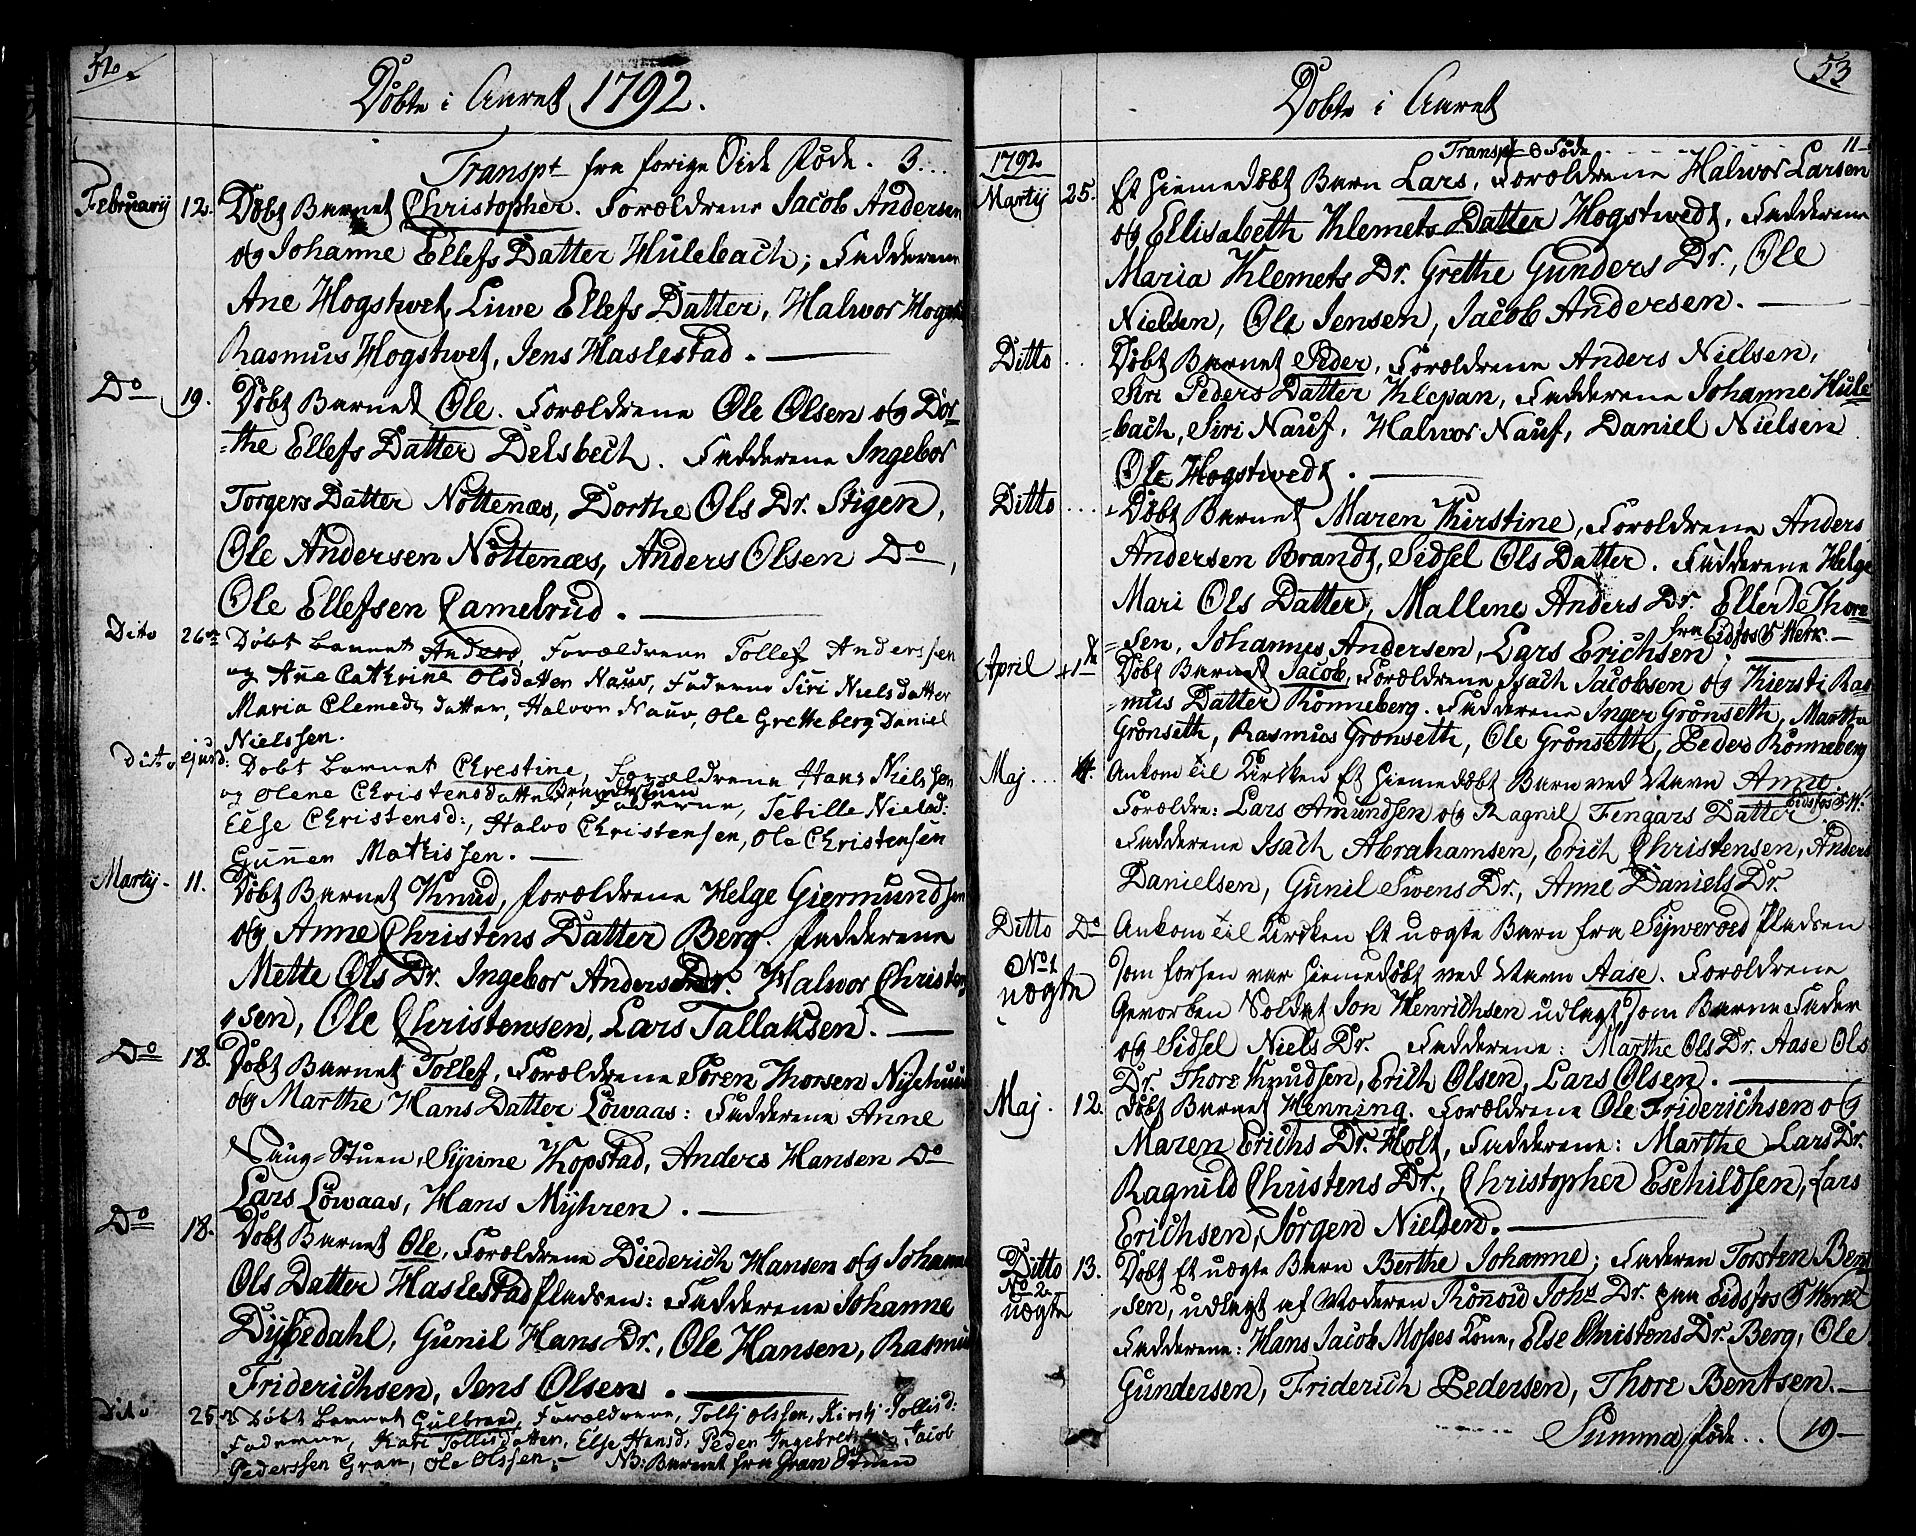 52
Döbte i Aaret 1792.
Transpt fra forige Side Föde. 3...
Februarij 12. Döbt Barnet Christopher. Forældrene Jacob Andersen
og Johanne Ellefs Datter Hulebach; Fadderene
Ane Hogstvet, Liwe Ellefs Datter, Halwor
Rasmus Hogstwet, Jens Haslestad.
Do 19. Döbt Barnet Ole. Forældrene Ole Olsen og Dor=
=the Ellefs Datter Delsbech. Fadderene Ingebor
Torgers Datter Nöttenæs, Dorthe Ols Dr. Stigen,
Ole Andersen Nöttenæs, Anders Olsen Do,
Ole Ellefsen Camelrud.
Dito 26de Döbt barnet Anders, Forældrene Tollef Anderssen
og Ane Cathrine Olsdatter Nauv, Faderne Siri Nielsdatter
Maria Clemeds datter, Halvor Nauv, Ole Gretteberg Daniel
Nielssen.
dito ejusd: Döbt barnet Chrestine, Forældrene Hans Nielssen
og Olene Christensdatter Brændstuen Faderne, Sebille Nielsd:
Else Christensd:, Halvo Christensen, Ole Christensen
Gunner Mathissen.
Martij. 11. Döbt Barnet Knud, forældrene Helge Giermundsen
og Anne Christens Datter Berg. Fadderene
Mette Ols Dr. Ingebor Anders Dr. Halwor Christen
sen, Ole Christensen, Lars Tallaksen.
Do 18. Döbt Barnet Tollef, Forældrene Sören Thorsen Nyehuus
og Marthe Hans Datter Löwaas: Fadderene Anne
Saug=Stuen, Sirine Kopstad, Anders Hansen Do
Lars Löwaas, Hans Myhren.
Do 18. Döbt Barnet Ole, Forældrene Diederich Hansen og Johanne
Ols Datter Haslestad Pladsen: Fadderene Johanne
Dybedahl, Gunil Hans Dr., Ole Hansen, Rasmus
Friderichsen, Jens Olsen.
Dito 25de Döbt barnet Gulbrand, Forældrene, Tolli Olssen, Kirsti Tollisd:
Faderne, Kari Tollisdatter, Else Hansd, Peder Jacob
Pederssen Gran, Ole Olssen, NB: Barnet fra Gran Stuen
53
Döbte i Aaret
1792 Transpt Föde 11
Martij 25. Et hiemedöbt Barn Lars, Forældrene Halwor Larsen
og Ellisabeth Klemets Datter Hogstwedt, Fadderene
Maria Klemets Dr. Grethe Gunders Dr., Ole
Nielsen, Ole Jensen, Jacob Andersen.
Ditto Döbt Barnet Peder, Forældrene Anders Nielsen,
Siri Peders Datter Klepan, Fadderene Johanne Hule=
=bach, Siri Nauf, Halwor Nauf, Daniel Nielsen
Ole Hogstwedt.
Ditto Döbt Barnet Maren Kirstine, Forældrene Anders
Andersen Brandt, Sidsel Ols Datter. Fadderene Helge
Mari Ols Datter, Mallene Anders Dr. Thore=
=sen, Johannes Andersen, Lars Erichsen. fra Eidsfos Werk.
April 1de Döbt Barnet Jacob, Forældrene Isach Jacobsen og Kiersti Ras=
=mus Datter Rönneberg. Fadderene Inger Grönseth, Marthe
Grönseth, Rasmus Grönseth, Ole Grönseth, Peder Rönneberg
Maj... Ankom til Kirken Et hiemedöbt Barn ved Navn Anne
Forældre: Lars Amundsen og Ragnil Fengars Datter Eidsfos W.
Fadderene Isach Abrahamsen, Erich Christensen, Anders
Danielsen, Gunil Swens Dr., Anne Daniels Dr.
Ditto Do Ankom til Kirken Et uægte Barn fra Pladsen
No 1 uægte
som forhen var hiemedöbt ved Navn Aase. Forældrene
Gevorben Soldat Jon Henrichsen udlagt som Barne Fader
og Sidsel Niels Dr. Fadderene: Marthe Ols Dr. Aase Ols
Dr. Thore Knudsen, Erich Olsen, Lars Olsen.
Maj. 12. Döbt Barnet Henning. Forældrene Ole Friderichsen og
Maren Erichs Dr. Holt, Fadderene: Marthe Lars Dr.
Ragnild Christens Dr., Christopher Eschildsen, Lars
Erichsen, Jörgen Nielsen.
Ditto 13. Döbt Et uægte Barn Berthe Johanne; Faderen Torsten Bent
No 2 uægte
=sen, udlagt af Moderen Rönnou Joh: Dr. paa Eidsfos Werket
Fadderene: Hans Jacob Mosses Kone, Else Christens Dr. Berg, Ole
Gundersen, Friderich Pedersen, Thore Bentsen.
Summa föde.. 19